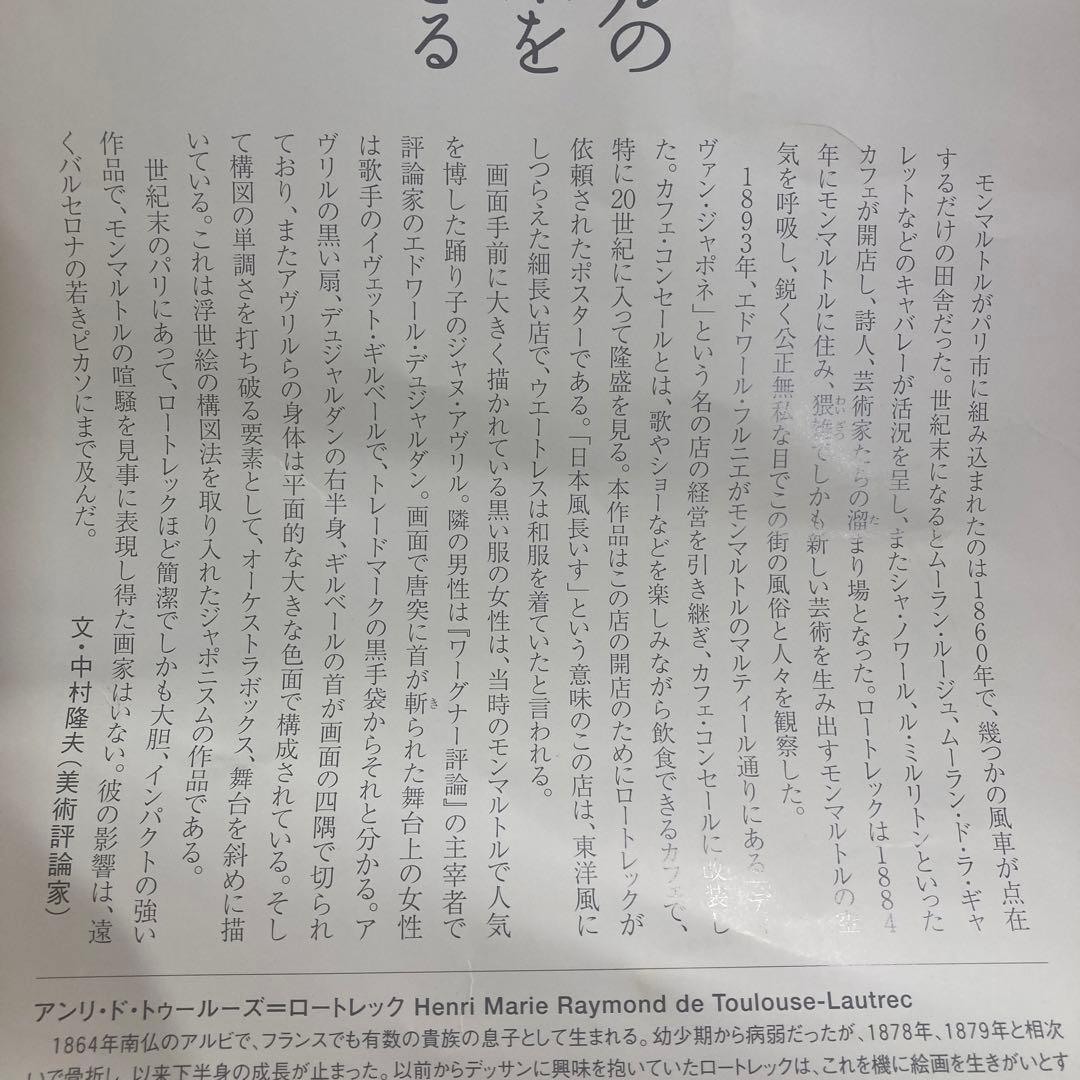 ルの
を
る
モンマルトルがパリ市に組み込まれたのは1860年で、幾つかの風車が点在
するだけの田舎だった。世紀末になるとムーラン・ルージュ、ムーラン・ド・ラ・ギャ
レットなどのキャバレーが活況を呈し、またシャ・ノワール、ル・ミルリトンといった
カフェが開店し、詩人、芸術家たちの溜まり場となった。ロートレックは1884
年にモンマルトルに住み、猥雑でしかも新しい芸術を生み出すモンマルトルの空
気を呼吸し、鋭く公正無私な目でこの街の風俗と人々を観察した。
1893年、エドワール・フルニエがモンマルトルのマルティール通りにある
ヴァン・ジャポネ」という名の店の経営を引き継ぎ、カフェ・コンセールに改装し
た。カフェ・コンセールとは、歌やショーなどを楽しみながら飲食できるカフェで、
特に20世紀に入って隆盛を見る。本作品はこの店の開店のためにロートレックが
依頼されたポスターである。「日本風長いす」という意味のこの店は、東洋風に
しつらえた細長い店で、ウエートレスは和服を着ていたと言われる。
画面手前に大きく描かれている黒い服の女性は、当時のモンマルトルで人気
を博した踊り子のジャヌ・アヴリル。隣の男性は『ワーグナー評論』の主宰者で
評論家のエドワール・デュジャルダン。画面で唐突に首が斬られた舞台上の女性
は歌手のイヴェット・ギルベールで、トレードマークの黒手袋からそれと分かる。ア
ヴリルの黒い扇、デュジャルダンの右半身、ギルベールの首が画面の四隅で切られ
ており、またアヴリルらの身体は平面的な大きな色面で構成されている。そし
て構図の単調さを打ち破る要素として、オーケストラボックス、舞台を斜めに描
いている。これは浮世絵の構図法を取り入れたジャポニスムの作品である。
世紀末のパリにあって、ロートレックほど簡潔でしかも大胆、インパクトの強い
作品で、モンマルトルの喧騒を見事に表現し得た画家はいない。彼の影響は、遠
くバルセロナの若きピカソにまで及んだ。
文・中村隆夫（美術評論家）
アンリ・ド・トゥールーズ＝ロートレック Henri Marie Raymond de Toulouse-Lautrec
1864年南仏のアルビで、フランスでも有数の貴族の息子として生まれる。幼少期から病弱だったが、1878年、1879年と相次
いで骨折し、以来下半身の成長が止まった。以前からデッサンに興味を抱いていたロートレックは、これを機に絵画を生きがいとす